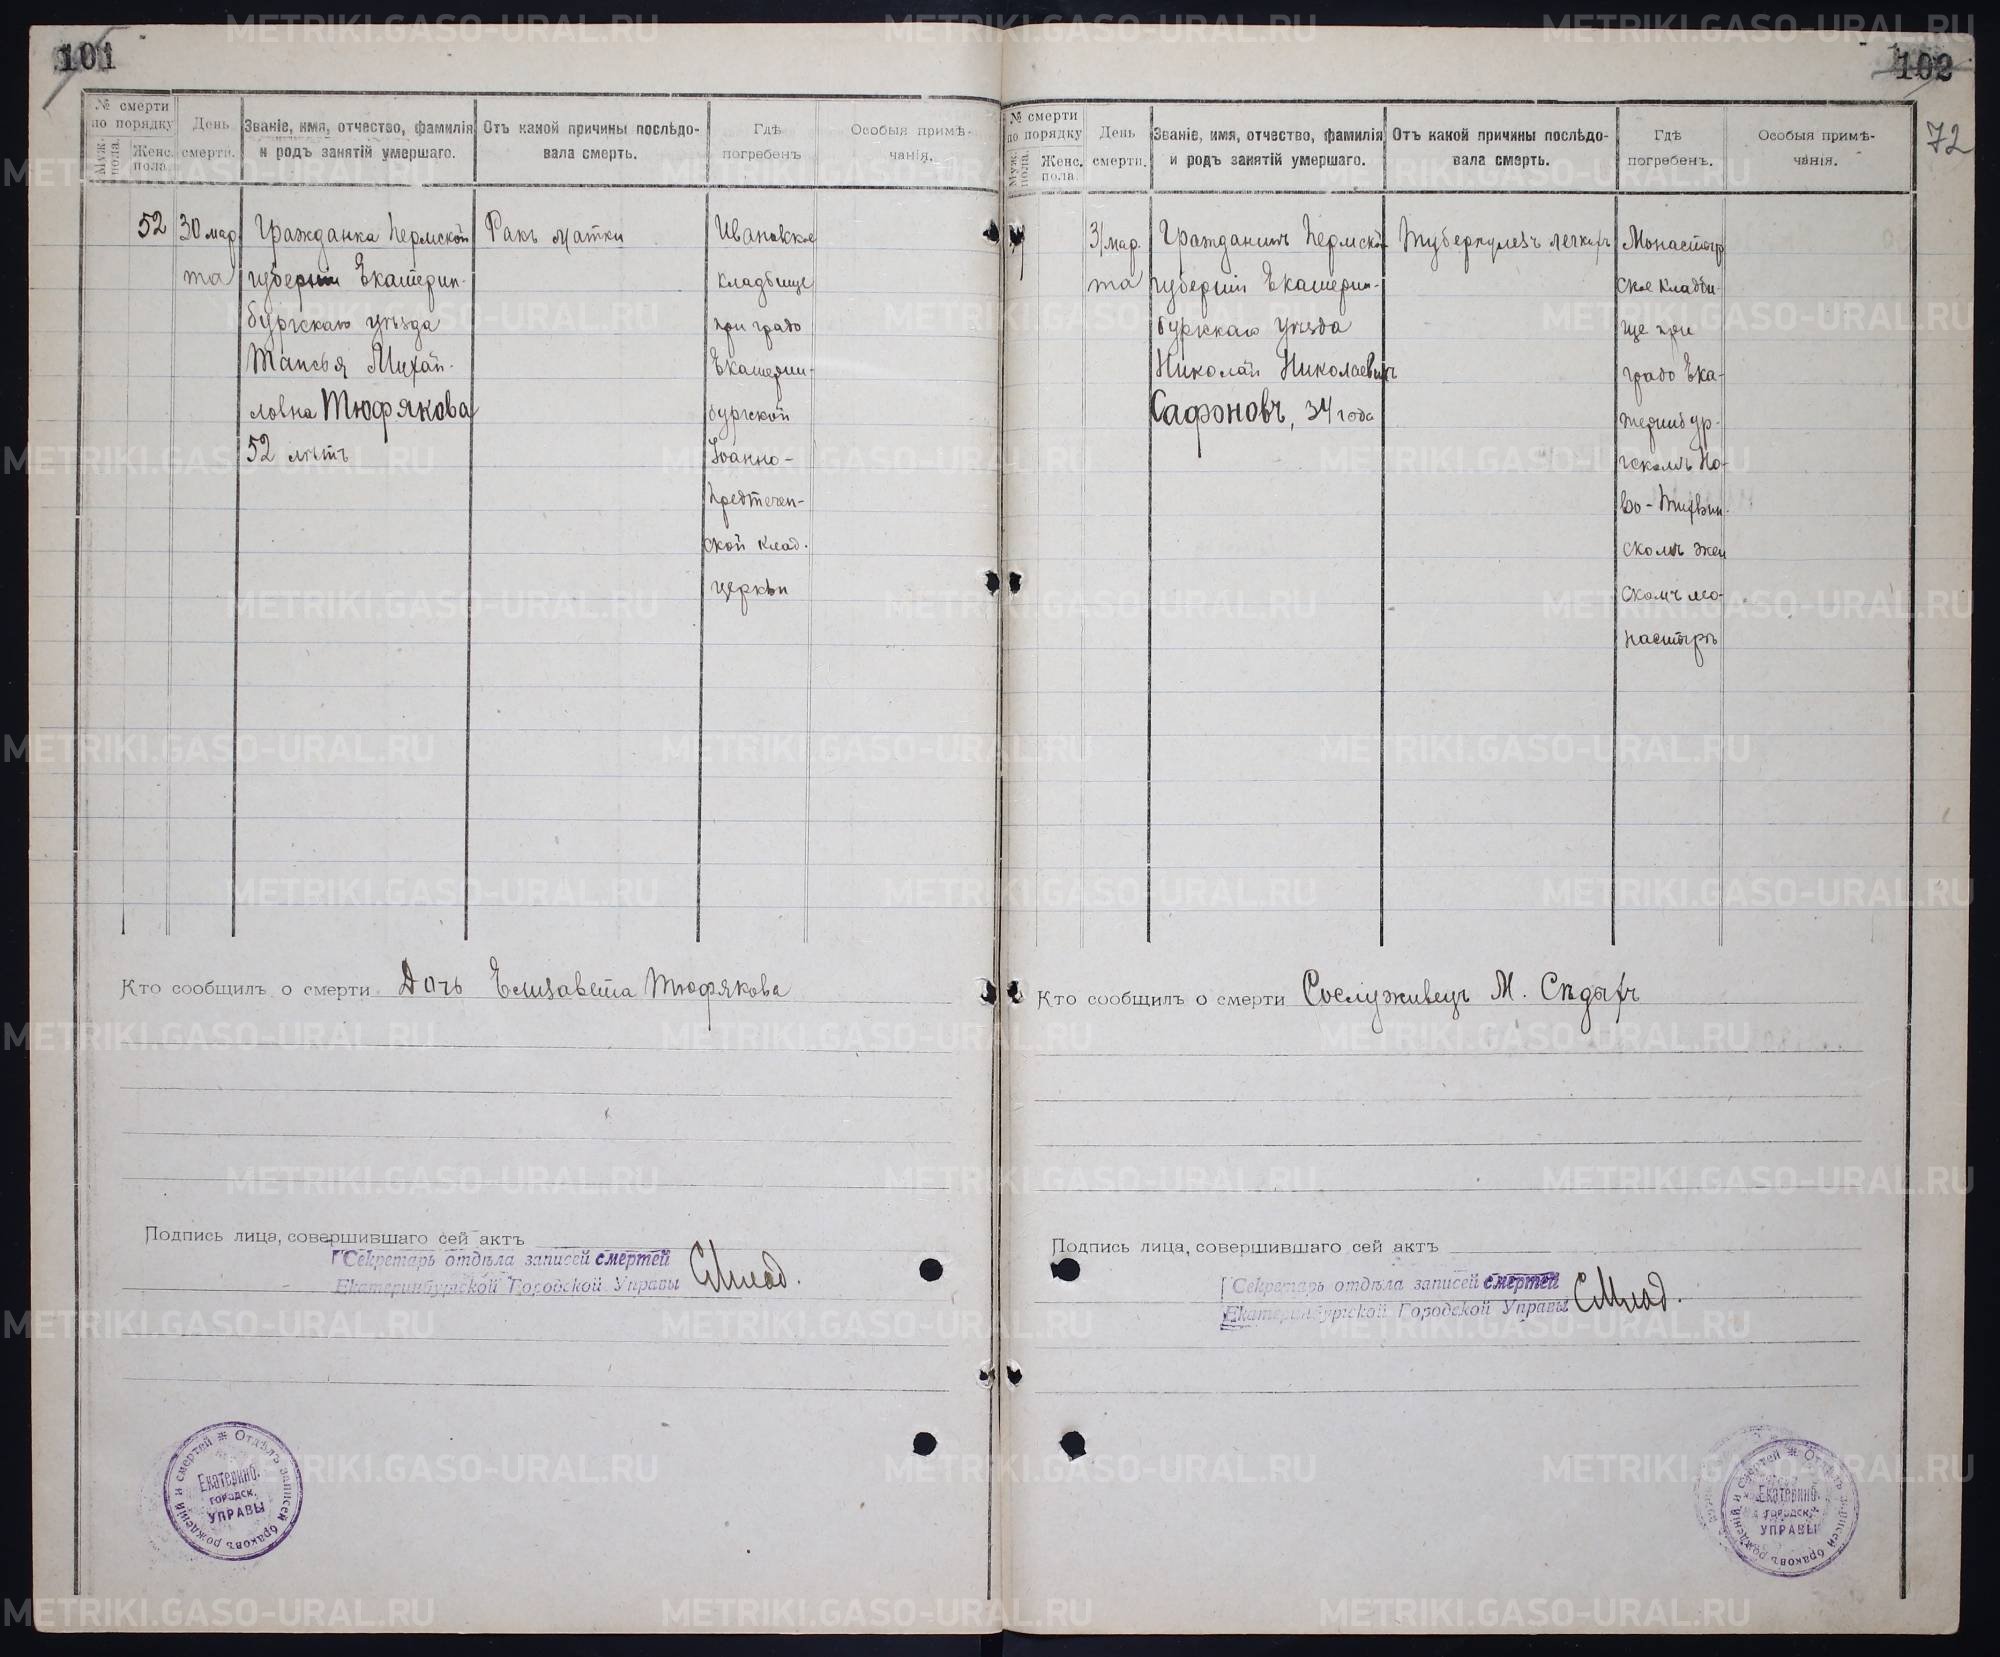 101
№ смерти
по порядку
Муж.
пола.
Женс.
пола.
День
смерти.
Званіе, имя, отчество, фамилія
и родъ занятій умершаго.
Отъ какой причины послѣдо-
вала смерть.
Гдѣ
погребенъ
Особыя примѣ-
чанія.
52
30 мар
та
Гражданка Пермской
губерніи Екатерин-
бургскаго уѣзда
Таисья Михай-
ловна Тюфякова
52 лѣтъ
Ракъ матки
Ивановское
кладбище
при градо
Екатерин-
бургской
Іоанно-
Предтечен-
ской клад.
церкви
Кто сообщилъ о смерти Дочь Елизавета Тюфякова
Подпись лица, совершившаго сей актъ
Секретарь отдѣла записей смертей
Екатеринбургской Городской Управы
Отдѣлъ записей браковъ рожденій и смертей
Екатеринб.
городск.
УПРАВЫ
102
72
№ смерти
по порядку
Муж.
пола.
Женс.
пола.
День
смерти.
Званіе, имя, отчество, фамилія
и родъ занятій умершаго.
Отъ какой причины послѣдо-
вала смерть.
Гдѣ
погребенъ.
Особыя примѣ-
чанія.
31 мар.
та
Гражданинъ Пермской
губерніи Екатерин-
бургскаго уѣзда
Николай Николаевичъ
Сафоновъ, 34 года
Туберкулезъ легкихъ
Монастыр
ское кладби-
ще при
градо Ека-
теринбур-
гскомъ Но-
во-Тихвин-
скомъ жен
скомъ мо-
настырѣ
Кто сообщилъ о смерти Сослуживецъ М. Сѣдыхъ
Подпись лица, совершившаго сей актъ
Секретарь отдѣла записей смертей
Екатеринбургской Городской Управы
Отдѣлъ записей браковъ рожденій и смертей
Екатеринб.
городск.
УПРАВЫ
METRIKI.GASO-URAL.RU